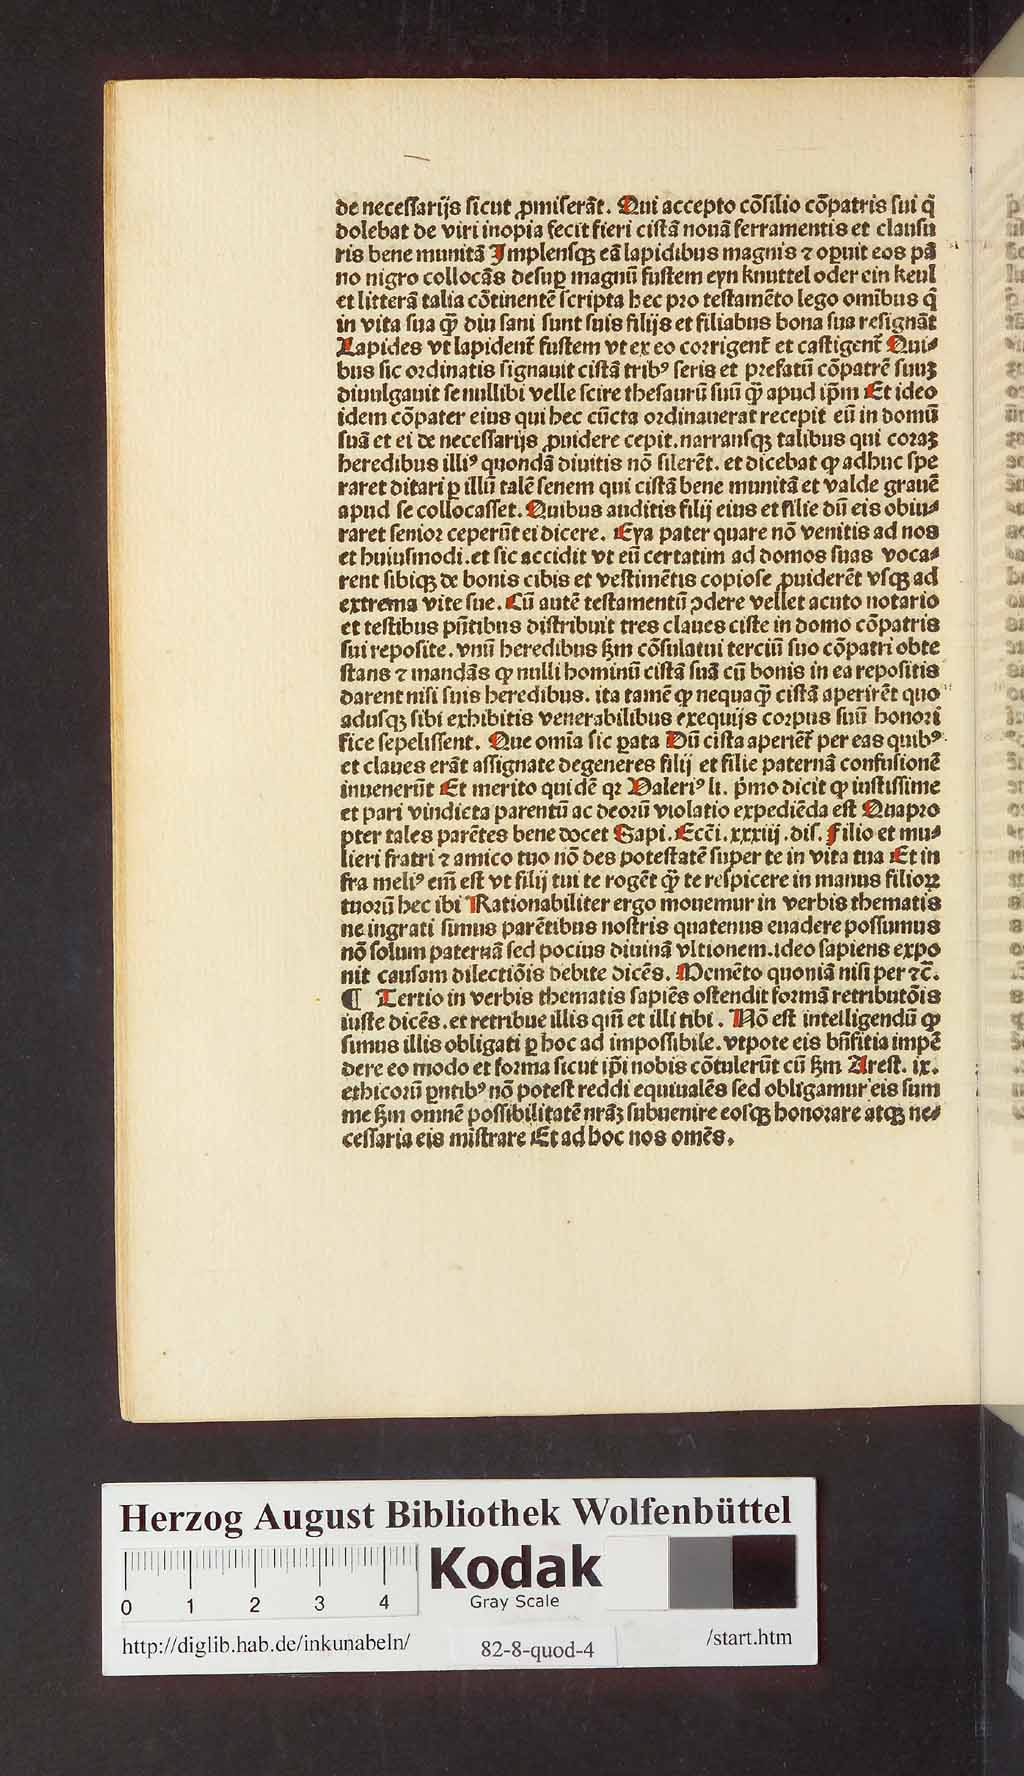 de necessarijs sicut ꝓmiserāt. Qui accepto cōsilio cōpatris sui q̄
dolebat de viri inopia fecit fieri cistā nouā ferramentis et clausu
ris bene munitā Implensqꝫ eā lapidibus magnis ⁊ oꝑuit eos pā
no nigro collocās desuꝑ magnū fustem eyn knuttel oder ein keul
et litterā talia cōtinentē scripta hec pro testamēto lego omībus q̄
in vita sua qͣ̄ diu sani sunt suis filijs et filiabus bona sua resignāt
Lapides vt lapident᷑ fustem vt ex eo corrigent᷑ et castigent᷑ Qui⸗
bus sic ordinatis signauit cistā tribꝰ seris et prefatū cōpatrē suuꝫ
diuulgauit se nullibi velle scire thesaurū suū qͣ̄ apud ip̄m Et ideo
idem cōpater eius qui hec cūcta ordinauerat recepit eū in domū
suā et ei de necessarijs ꝓuidere cepit. narransqꝫ talibus qui coraꝫ
heredibus illiꝰ quondā diuitis nō silerēt. et dicebat ꝙ adhuc spe
raret ditari ꝑ illū talē senem qui cistā bene munitā et valde grauē
apud se collocasset. Quibus auditis filij eius et filie dū eis obiu⸗
raret senior ceperūt ei dicere. Eya pater quare nō venitis ad nos
et huiusmodi. et sic accidit vt eū certatim ad domos suas voca⸗
rent sibiqꝫ de bonis cibis et vestimētis copiose ꝓuiderēt vsqꝫ ad
extrema vite sue. Cū autē testamentū ꝯdere vellet acuto notario
et testibus pn̄tibus distribuit tres claues ciste in domo cōpatris
sui reposite. vnū heredibus ẜm cōsulatui terciū suo cōpatri obte
stans ⁊ mandās ꝙ nulli hominū cistā suā cū bonis in ea repositis
darent nisi suis heredibus. ita tamē ꝙ nequaqͣ̄ cistā aperirēt quo
adusqꝫ sibi exhibitis venerabilibus exequijs corpus suū honori
fice sepelissent. Que omīa sic ꝑata Dū cista aperiet᷑ per eas quibꝰ
et claues erāt assignate degeneres filij et filie paternā confusionē
inuenerūt Et merito qui dē qꝛ Valeriꝰ li. p̄mo dicit ꝙ iustissime
et pari vindicta parentū ac deorū violatio expediēda est Quapro
pter tales parētes bene docet Sapi. Ecc̄i. xxxiij. dis. Filio et mu⸗
lieri fratri ⁊ amico tuo nō des potestatē super te in vita tua Et in
fra meliꝰ em̄ est vt filij tui te rogēt qͣ̄ te respicere in manus filioꝝ
tuorū hec ibi Rationabiliter ergo monemur in verbis thematis
ne ingrati simus parētibus nostris quatenus euadere possumus
nō solum paternā sed pocius diuinā vltionem. ideo sapiens expo
nit causam dilectiōis debite dicēs. Memēto quoniā nisi per ⁊c̄.
¶ Tertio in verbis thematis sapiēs ostendit formā retributōis
iuste dicēs. et retribue illis qm̄ et illi tibi. Nō est intelligendū ꝙ
simus illis obligati ꝑ hoc ad impossibile. vtpote eis bn̄fitia impē
dere eo modo et forma sicut ip̄i nobis cōtulerūt cū ẜm Arest. ix.
ethicorū ꝑntibꝰ nō potest reddi equiualēs sed obligamur eis sum
me ẜm omnē possibilitatē nr̄aꝫ subuenire eosqꝫ honorare atqꝫ ne⸗
cessaria eis mīstrare Et ad hoc nos omēs.
Herzog August Bibliothek Wolfenbüttel
0 1 2 3 4
Kodak
Gray Scale
http://diglib.hab.de/inkunabeln/
82-8-quod-4
/start.htm